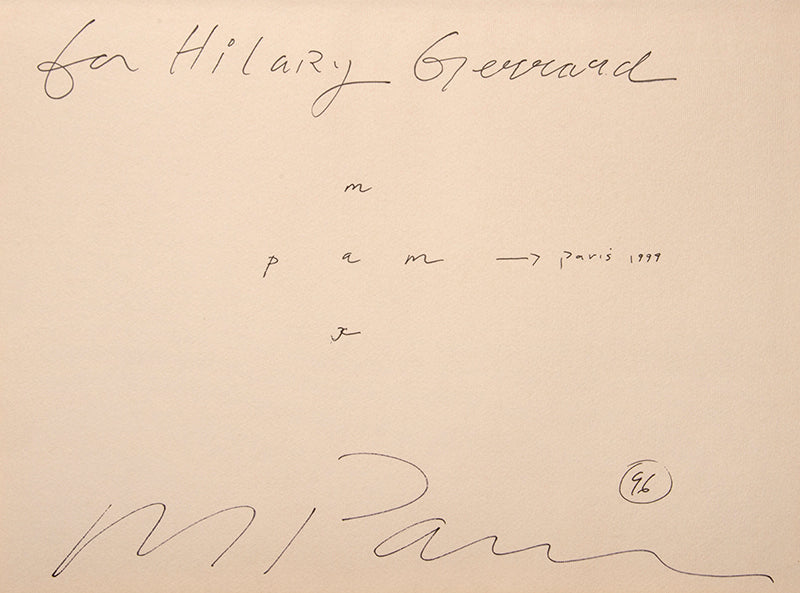 for Hilary Gerrard
m
p a m → paris 1999
x
96
M Pam